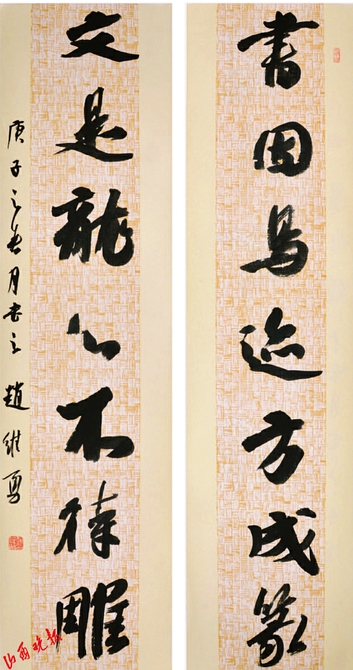 書因鳥迹方成篆
文是龍心不待雕
庚子之春月書之 趙維勇
山西晚报